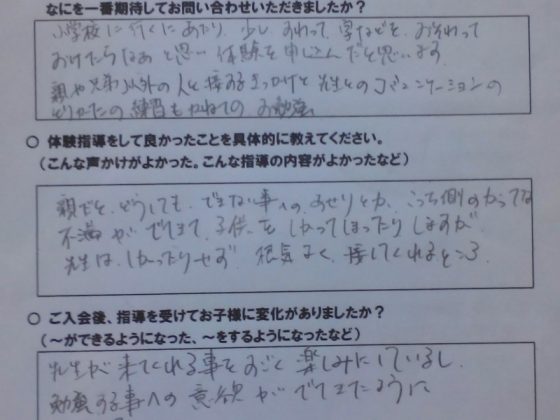 なにを一番期待してお問い合わせいただきましたか？
小学校に行くにあたり、少し、おわって、字などを、おそわって
おけたらなあと思い 体験を申し込んだと思います
親や兄弟以外の人と接するきっかけと先生とのコミュニケーションの
とりかたの練習もかねての お勉強
○ 体験指導をして良かったことを具体的に教えてください。
（こんな声かけがよかった。こんな指導の内容がよかったなど）
親だと、どうしても、できない事への、あせりとか、こっち側のかってな
不満がでてきて、子供をしかってしまったりしますが
先生は、しかったりせず 根気よく、接してくれるところ
○ ご入会後、指導を受けてお子様に変化がありましたか？
（～ができるようになった、～をするようになったなど）
先生が来てくれる事をすごく楽しみにしているし、
勉強する事への意欲がでてきたように